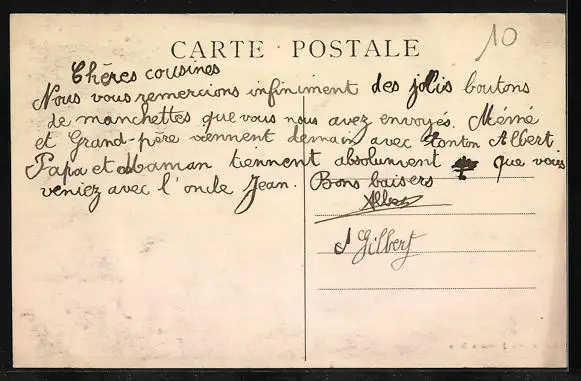 10
CARTE POSTALE
Chères cousines
Nous vous remercions infiniment des jolis boutons
de manchettes que vous nous avez envoyés. Mémé
et Grand-père viennent demain avec tonton Albert
Papa et Maman tiennent absolument que vous
veniez avec l'oncle Jean. Bons baisers
Albert
et Gilbert